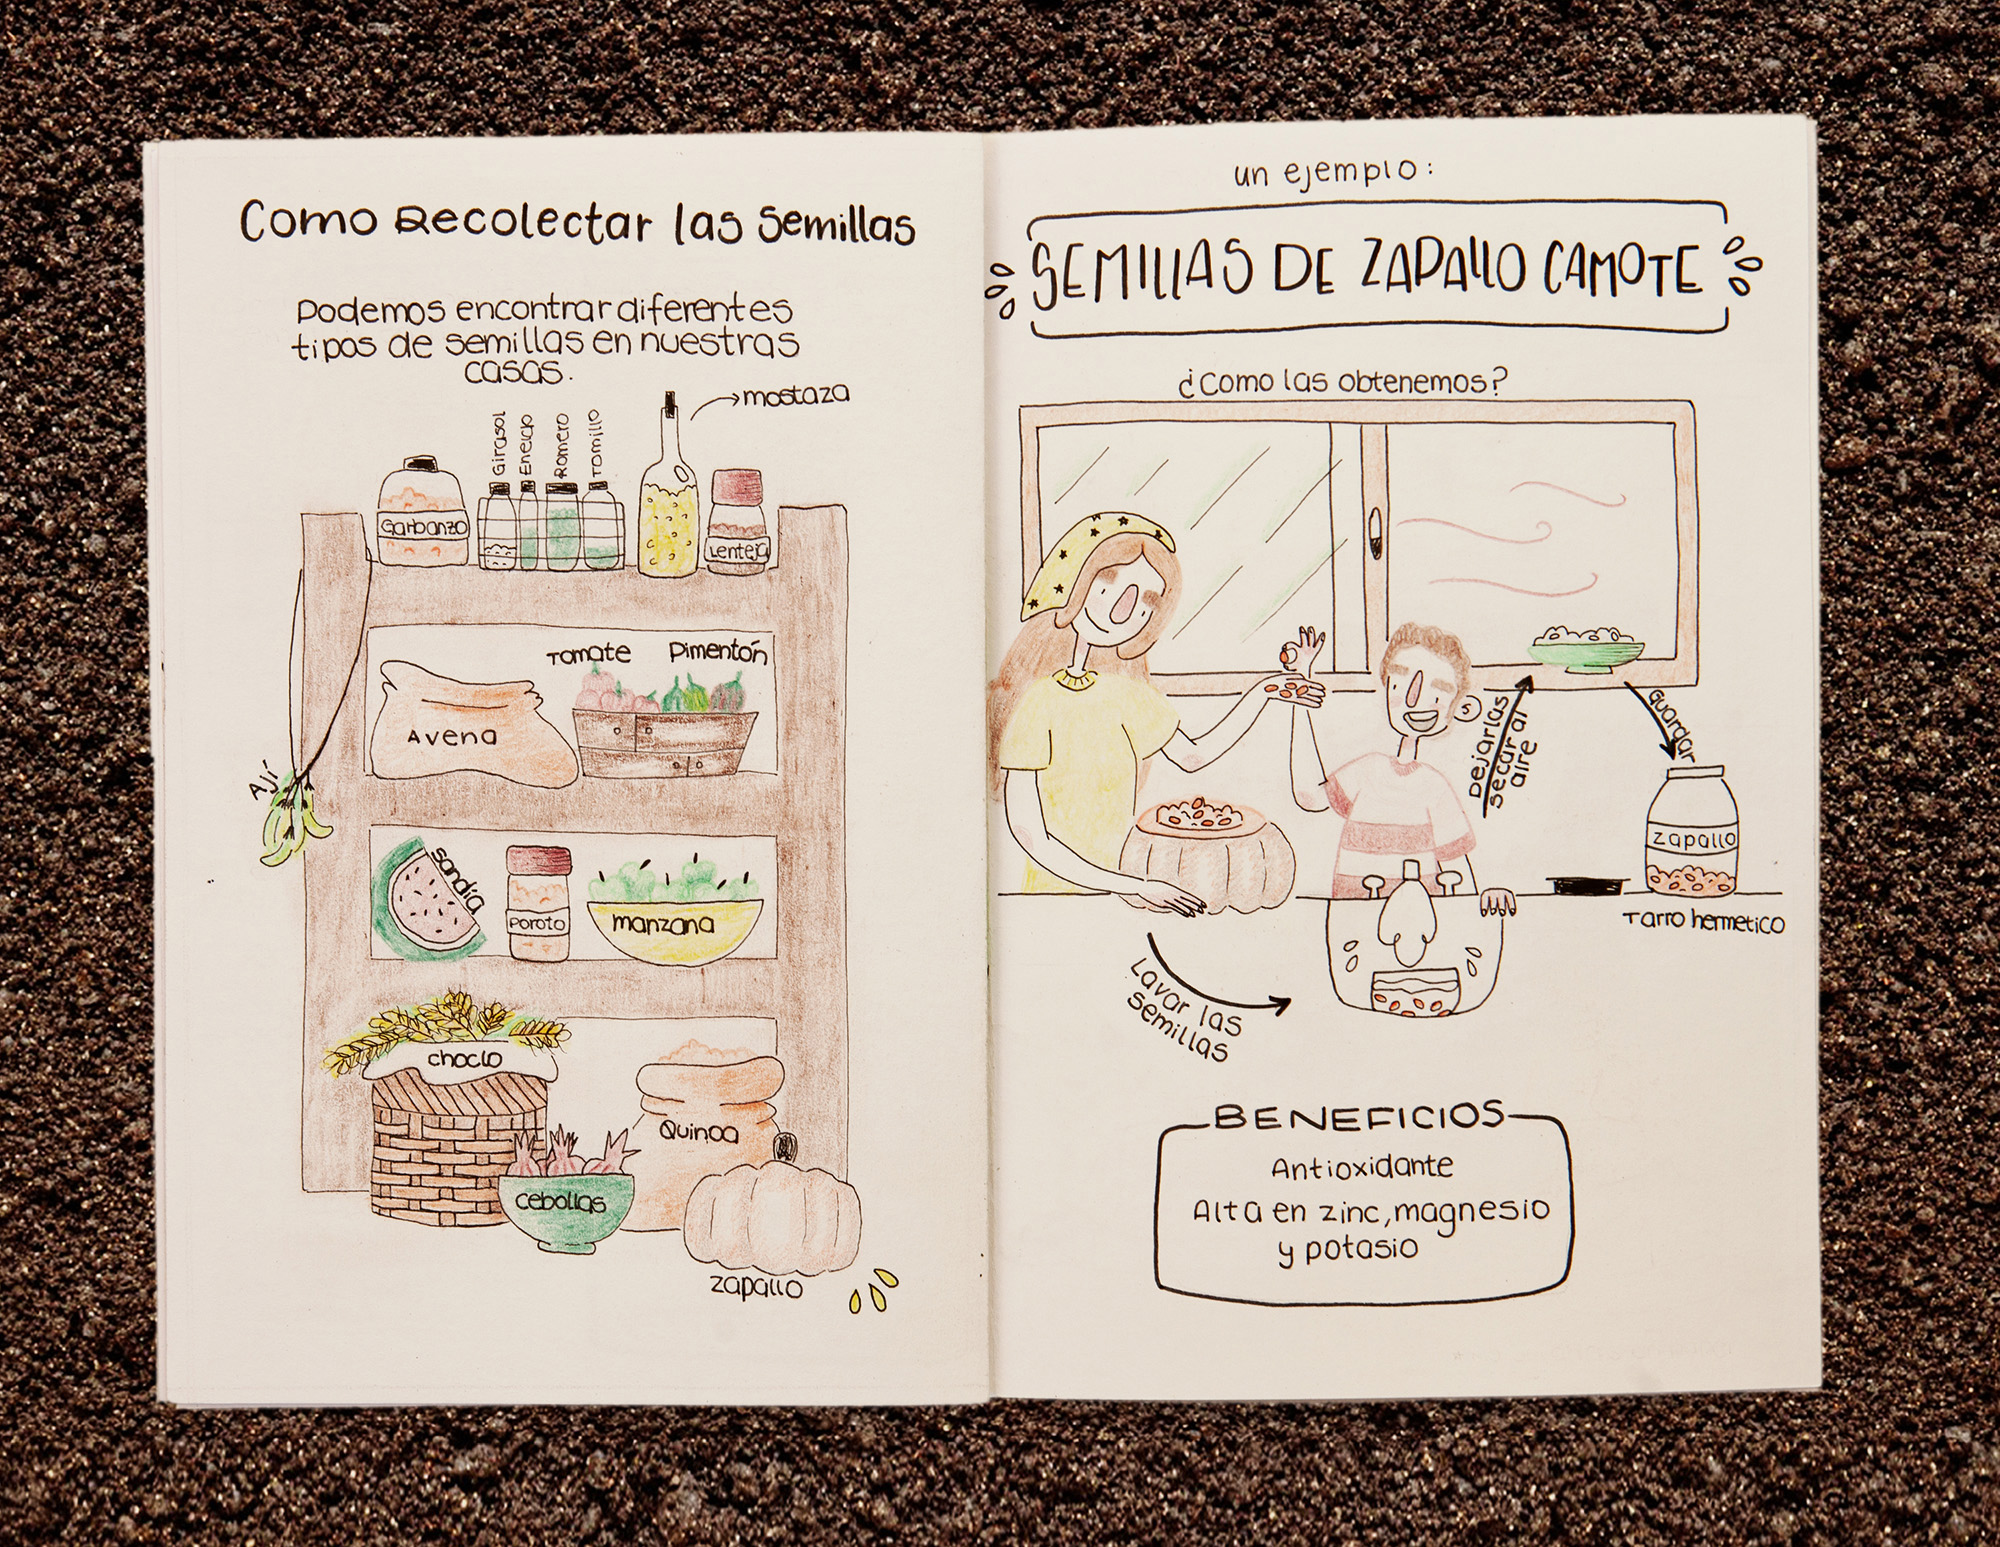 Como Recolectar las Semillas
Podemos encontrar diferentes
tipos de semillas en nuestras
casas.
mostaza
Girasol
Eneldo
Romero
Tomillo
Garbanzo
Lenteja
Tomate
Pimentón
Avena
Ají
sandía
Poroto
manzana
choclo
Quinoa
cebollas
zapallo
un ejemplo:
SEMILLAS DE ZAPALLO CAMOTE
¿Como las obtenemos?
Dejarlas
secar al
aire
Guardar
zapallo
Tarro hermetico
Lavar las
semillas
BENEFICIOS
Antioxidante
Alta en zinc, magnesio
y potasio